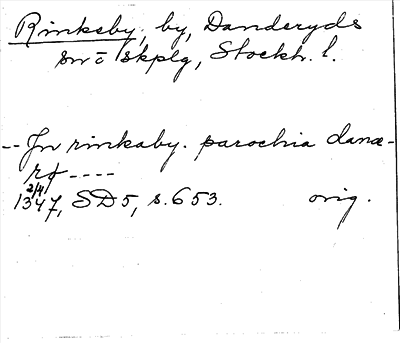 Rinkeby, by, Danderyds
sn o skplg, Stockh. l.
-- Jn rinkaby. parochia danæ-
rø ----
2/4
1347, SD5, s. 653. orig.